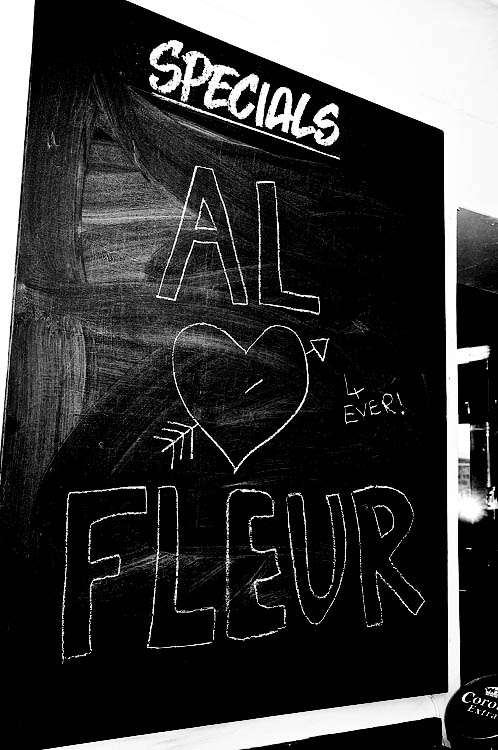 SPECIALS
AL
4
EVER!
FLEUR
Corona
Extra